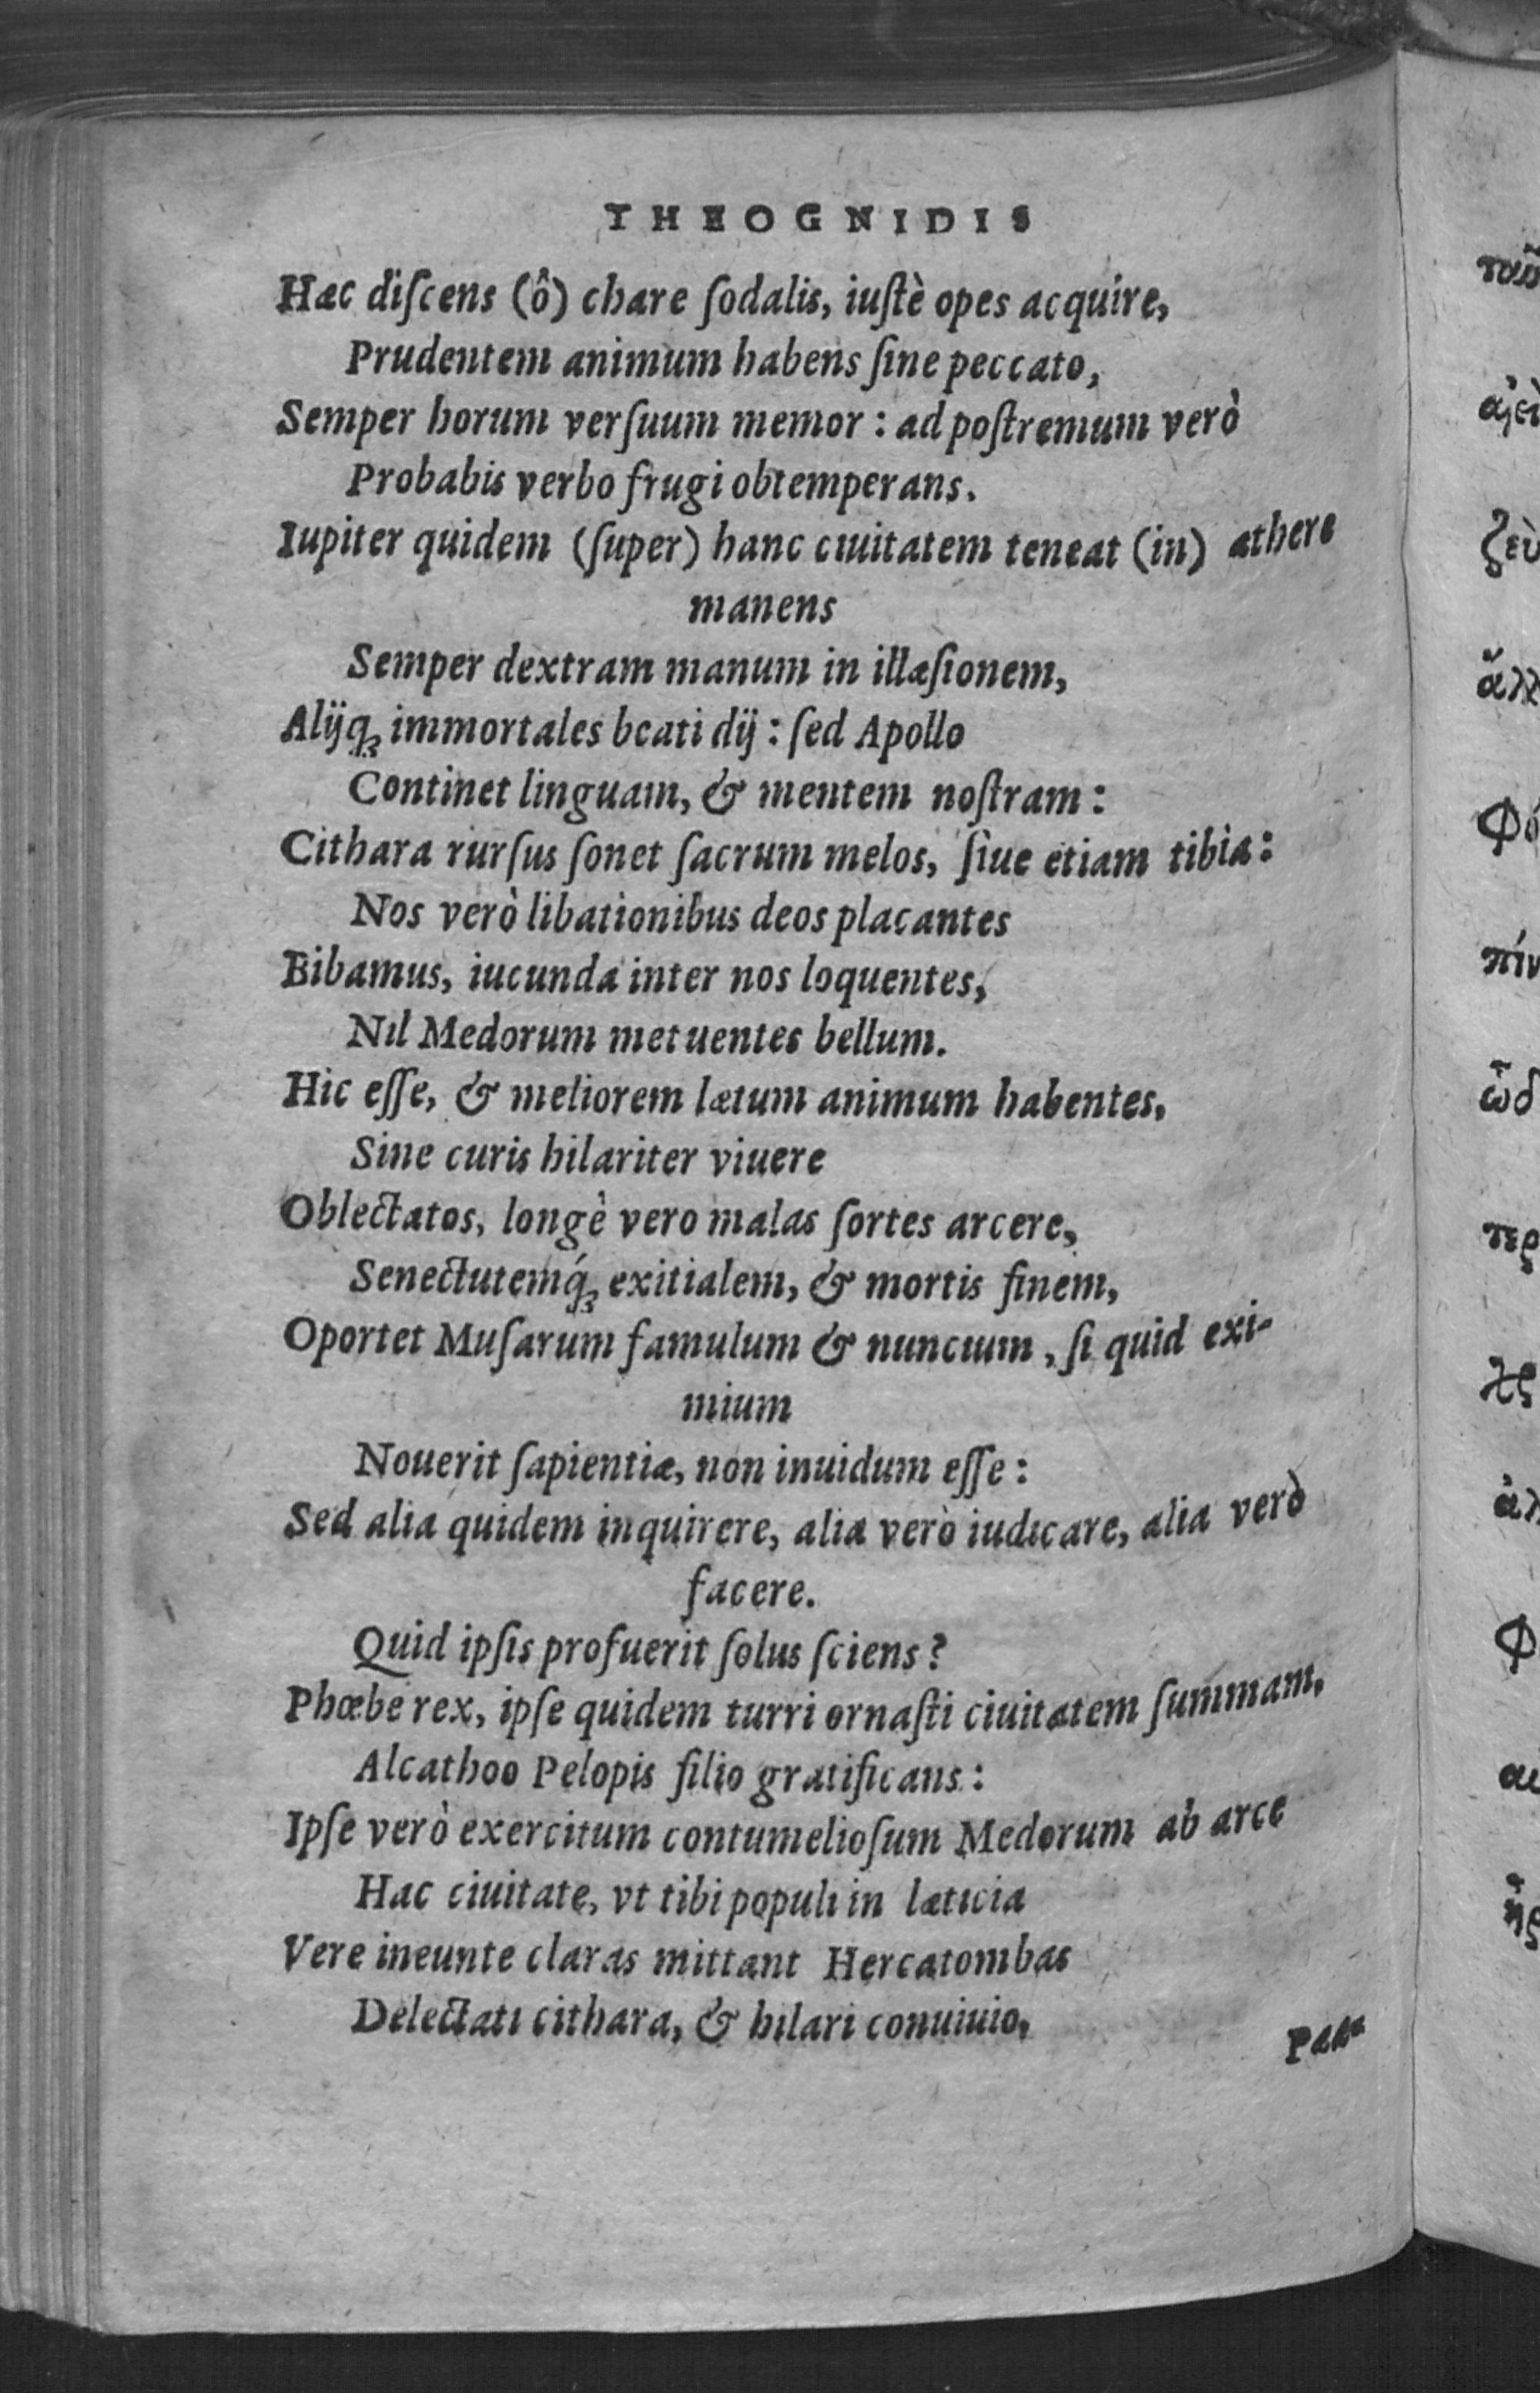 THEOGNIDIS
Hæc diſcens (ô) chare ſodalis, iuſtè opes acquire,
Prudentem animum habens ſine peccato,
Semper horum verſuum memor : ad poſtremum verò
Probabis verbo frugi obtemperans.
Iupiter quidem (ſuper) hanc ciuitatem teneat (in) æthere
manens
Semper dextram manum in illæſionem,
Alijq; immortales beati dij : ſed Apollo
Continet linguam, & mentem noſtram :
Cithara rurſus ſonet ſacrum melos, ſiue etiam tibia :
Nos verò libationibus deos placantes
Bibamus, iucunda inter nos loquentes,
Nil Medorum metuentes bellum.
Hic eſſe, & meliorem lætum animum habentes,
Sine curis hilariter viuere
Oblectatos, longè vero malas ſortes arcere,
Senectutemq́; exitialem, & mortis finem,
Oportet Muſarum famulum & nuncium, ſi quid exi-
mium
Nouerit ſapientiæ, non inuidum eſſe :
Sed alia quidem inquirere, alia verò iudicare, alia verò
facere.
Quid ipſis profuerit ſolus ſciens ?
Phœbe rex, ipſe quidem turri ornaſti ciuitatem ſummam,
Alcathoo Pelopis filio gratificans :
Ipſe verò exercitum contumelioſum Medorum ab arce
Hac ciuitate, vt tibi populi in læticia
Vere ineunte claras mittant Hercatombas
Delectati cithara, & hilari conuiuio,
Pæa-
ζεὺ
πίν
ὧδ
περ